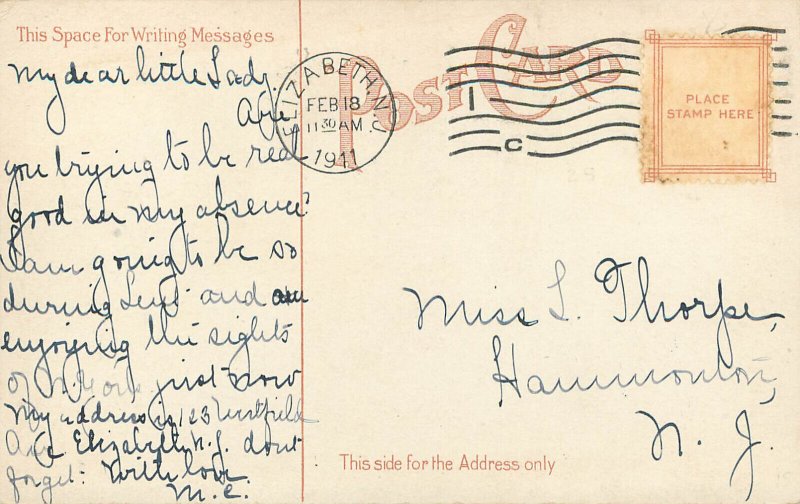 This Space For Writing Messages
My dear little Lady.
Are
you trying to be real
good in my absence?
I am going to be so
during Lent and am
enjoying the sights
of N. York just now
My address is 123 Westfield
Ave Elizabeth N.J. don't
forget. With love.
M. E.
POST CARD
ELIZABETH, N.J.
FEB 18
11 30 AM
1911
1
C
PLACE
STAMP HERE
Miss L. Thorpe,
Hammonton,
N. J.
This side for the Address only